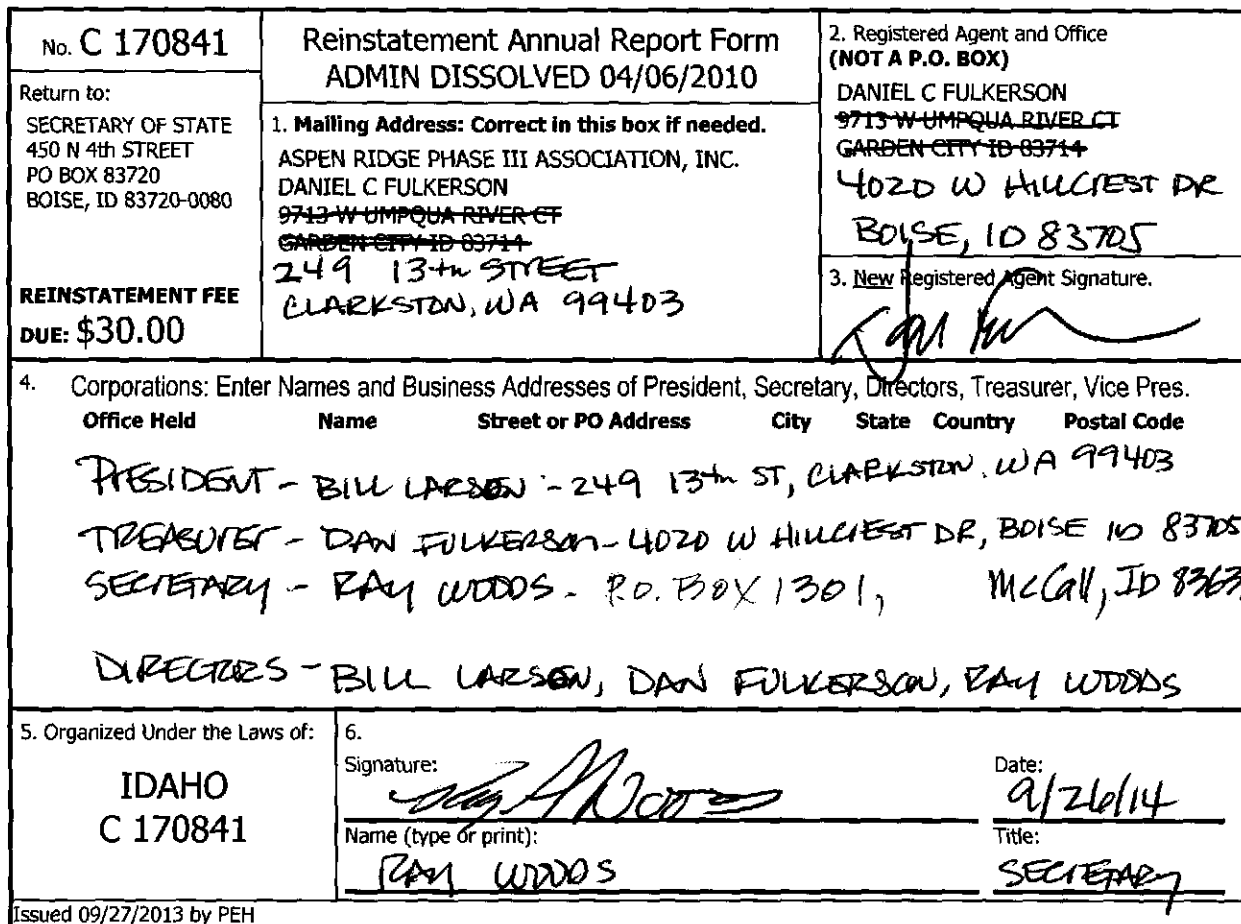 No. C 170841
Return to:
SECRETARY OF STATE
450 N 4th STREET
PO BOX 83720
BOISE, ID 83720-0080
REINSTATEMENT FEE
DUE: $30.00
Reinstatement Annual Report Form
ADMIN DISSOLVED 04/06/2010
1. Mailing Address: Correct in this box if needed.
ASPEN RIDGE PHASE III ASSOCIATION, INC.
DANIEL C FULKERSON
9713 W UMPQUA RIVER CT
GARDEN CITY ID 83714
249 13th STREET
CLARKSTON, WA 99403
2. Registered Agent and Office
(NOT A P.O. BOX)
DANIEL C FULKERSON
9713 W UMPQUA RIVER CT
GARDEN CITY ID 83714
4020 W HILLCREST DR
BOISE, ID 83705
3. New Registered Agent Signature.
4. Corporations: Enter Names and Business Addresses of President, Secretary, Directors, Treasurer, Vice Pres.
Office Held Name Street or PO Address City State Country Postal Code
PRESIDENT - BILL LARSEN - 249 13th ST, CLARKSTON, WA 99403
TREASURER - DAN FULKERSON - 4020 W HILLCREST DR, BOISE ID 83705
SECRETARY - RAY WOODS - P.O. BOX 1301, McCall, ID 8363
DIRECTORS - BILL LARSEN, DAN FULKERSON, RAY WOODS
5. Organized Under the Laws of:
IDAHO
C 170841
6.
Signature:
Date:
9/26/14
Name (type or print):
RAY WOODS
Title:
SECRETARY
Issued 09/27/2013 by PEH